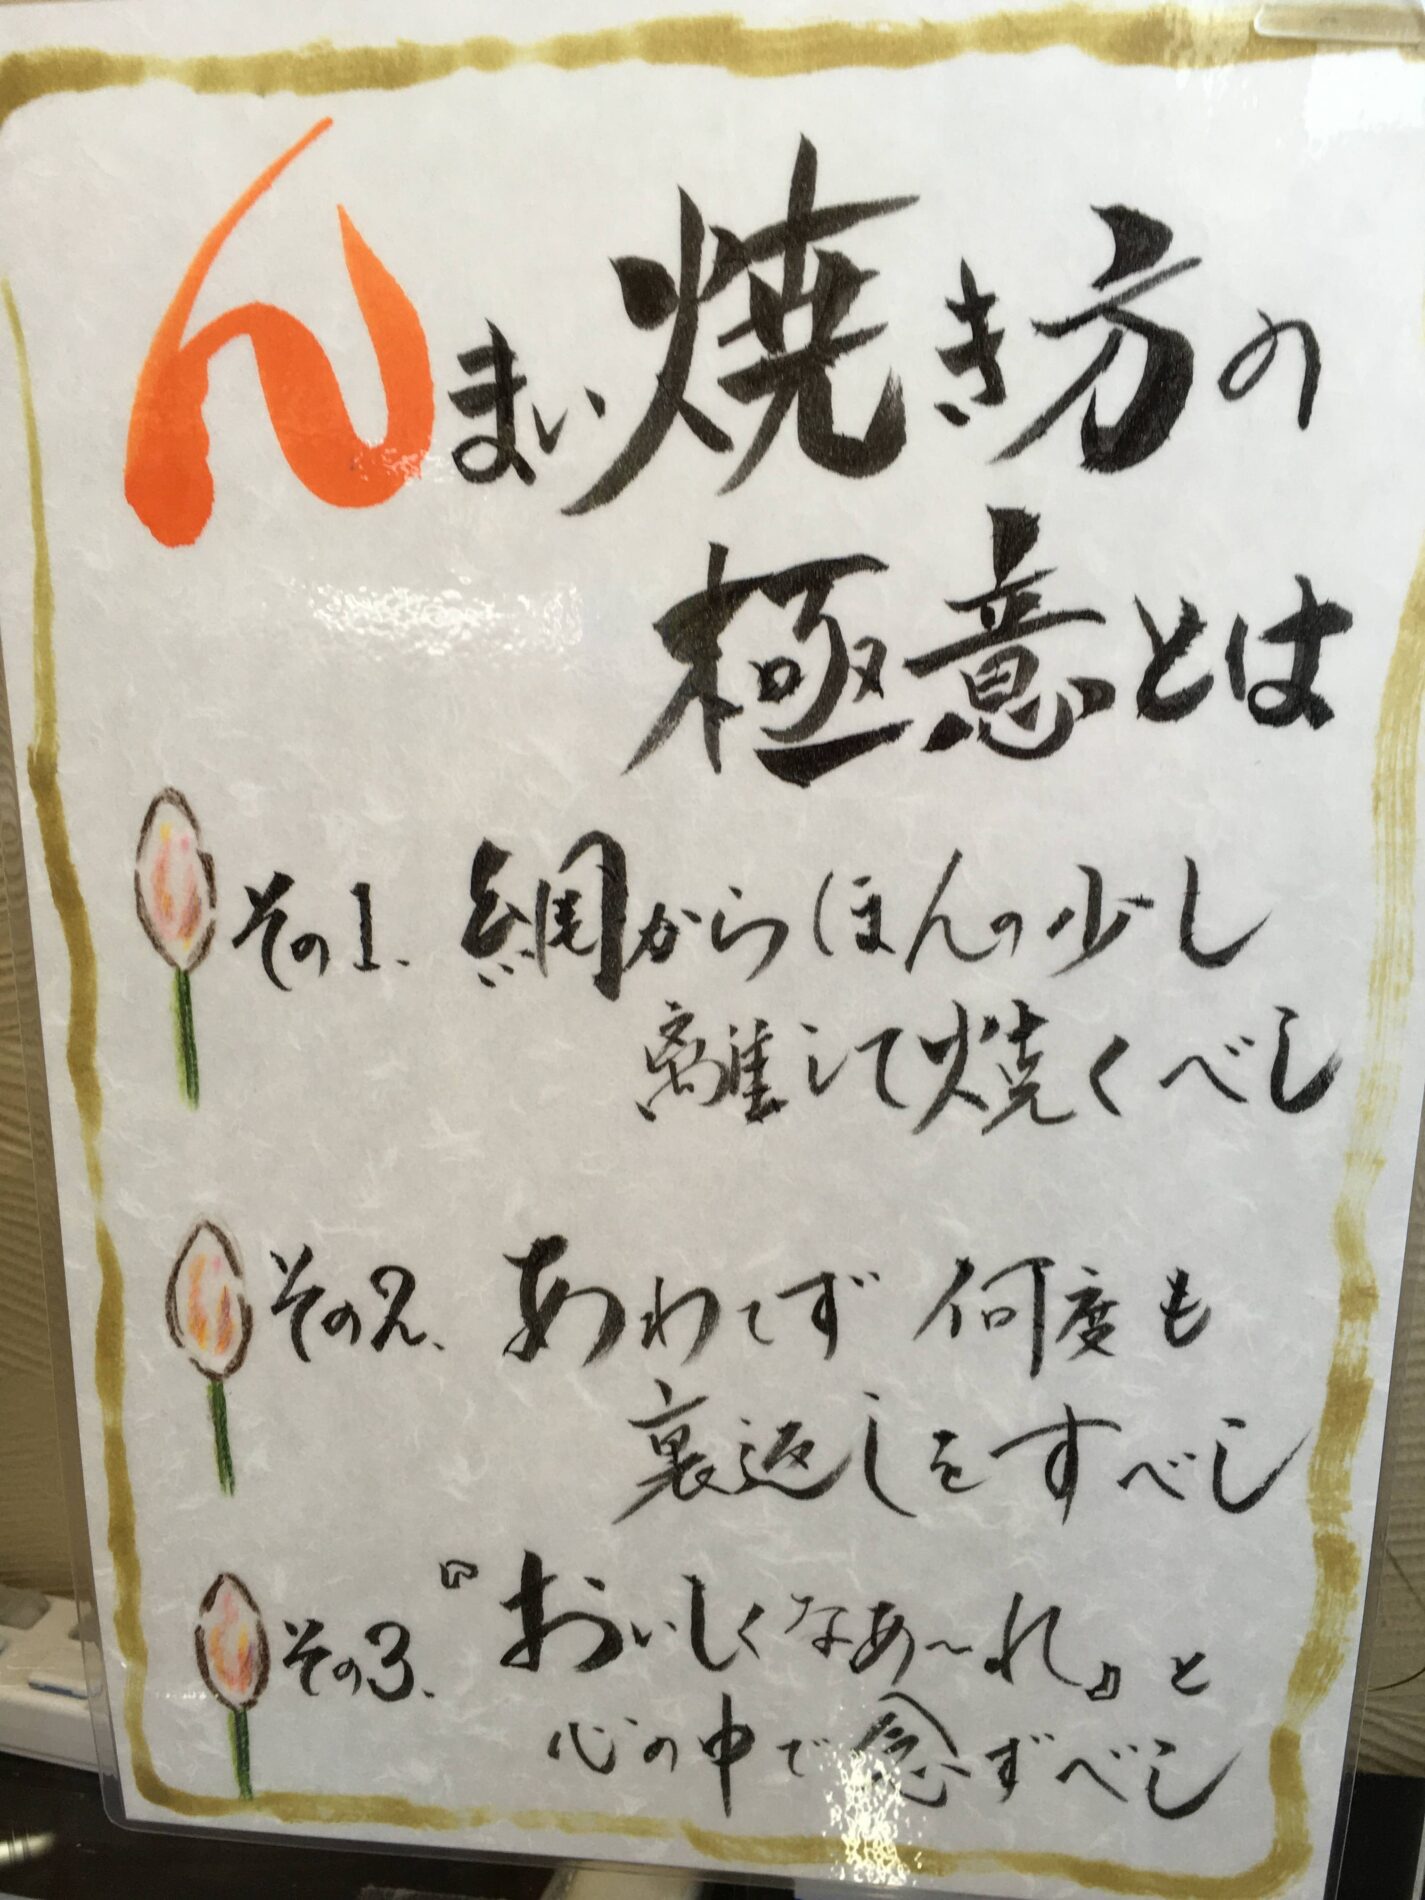 んまい焼き方の
極意とは
その1、網からほんの少し
離して焼くべし
その2、あわてず何度も
裏返しをすべし
その3、『おいしくなあ〜れ』と
心の中で念ずべし